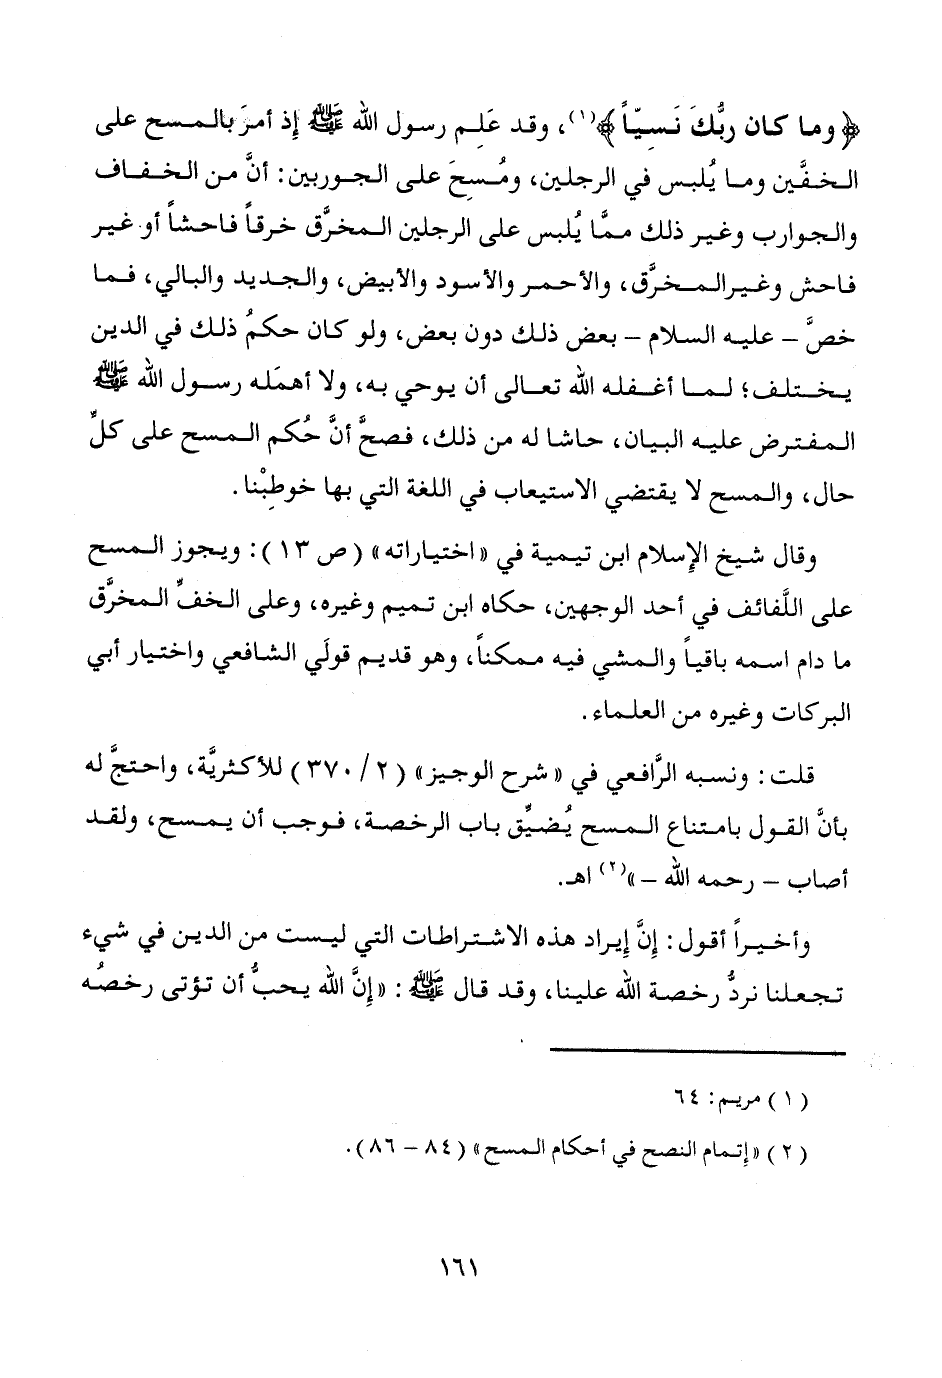 ﴿وما كان ربُّكَ نَسيّاً﴾(١)، وقد عَلِم رسول الله ﷺ إذ أمرَ بالمسح على
الخفَّين وما يُلبس في الرجلين، ومُسِحَ على الجوربين: أنَّ من الخفاف
والجوارب وغير ذلك ممَّا يُلبس على الرجلين المخرَّق خرقاً فاحشاً أو غير
فاحش وغير المخرَّق، والأحمر والأسود والأبيض، والجديد والبالي، فما
خصَّ – عليه السلام – بعض ذلك دون بعض، ولو كان حكمُ ذلك في الدين
يختلف؛ لما أغفله الله تعالى أن يوحي به، ولا أهمَله رسول الله ﷺ
المفترض عليه البيان، حاشا له من ذلك، فصحَّ أنَّ حُكم المسح على كلِّ
حال، والمسح لا يقتضي الاستيعاب في اللغة التي بها خوطِبْنا.
وقال شيخ الإسلام ابن تيمية في «اختياراته» (ص ١٣): ويجوز المسح
على اللَّفائف في أحد الوجهين، حكاه ابن تميم وغيره، وعلى الخفِّ المخرَّق
ما دام اسمه باقياً والمشي فيه ممكناً، وهو قديم قولَي الشافعي واختيار أبي
البركات وغيره من العلماء.
قلت: ونسبه الرَّافعي في «شرح الوجيز» (٢/ ٣٧٠) للأكثريَّة، واحتجَّ له
بأنَّ القول بامتناع المسح يُضيِّق باب الرخصة، فوجب أن يمسح، ولقد
أصاب – رحمه الله –»(٢) اهـ.
وأخيراً أقول: إنَّ إيراد هذه الاشتراطات التي ليست من الدين في شيء
تجعلنا نردُّ رخصة الله علينا، وقد قال ﷺ: «إنَّ الله يحبُّ أن تؤتى رخصُه
(١) مريم: ٦٤
(٢) «إتمام النصح في أحكام المسح» (٨٤ – ٨٦).
١٦١